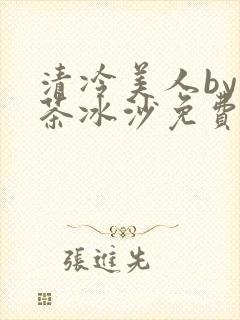 清冷美人by
茶冰沙免費
張進先